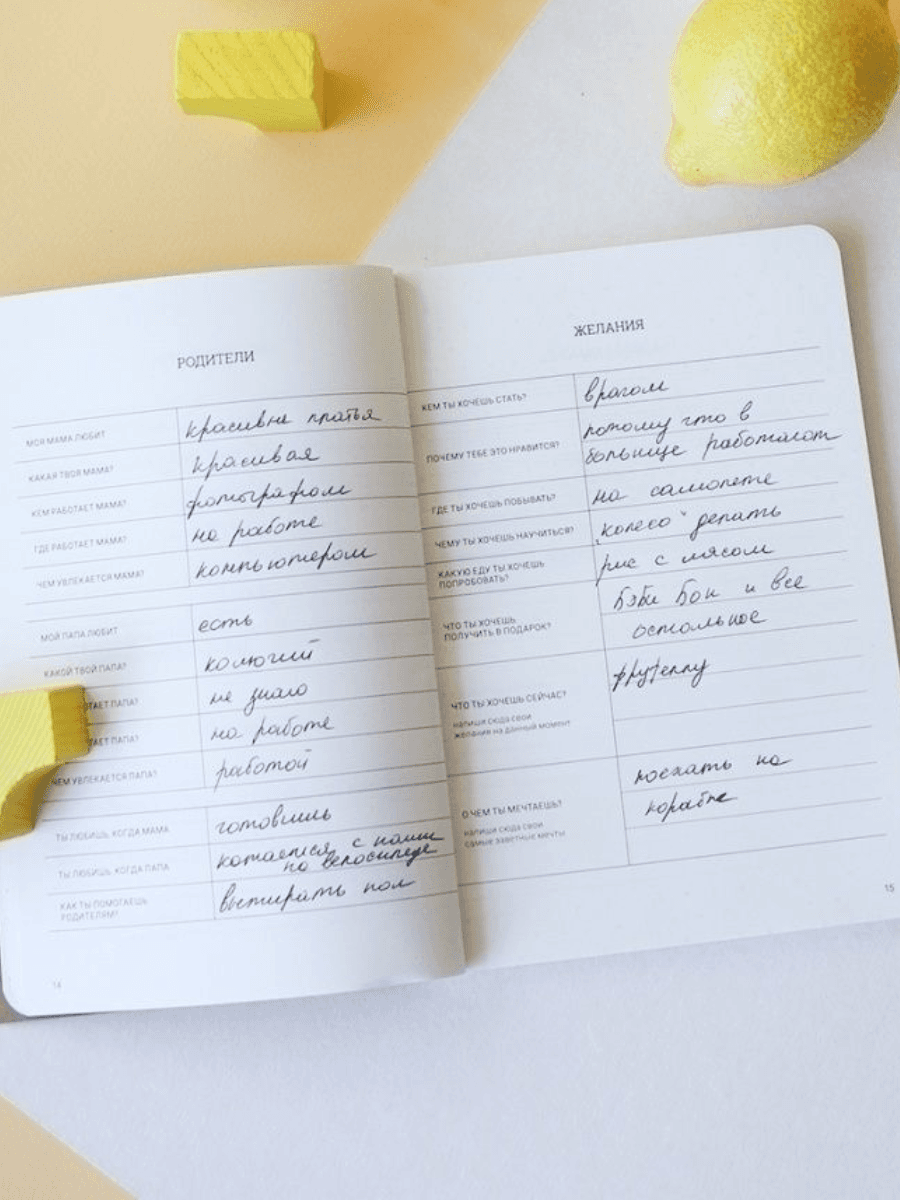 РОДИТЕЛИ
МОЯ МАМА ЛЮБИТ красивые платья
КАКАЯ ТВОЯ МАМА? красивая
КЕМ РАБОТАЕТ МАМА? фотографом
ГДЕ РАБОТАЕТ МАМА? на работе
ЧЕМ УВЛЕКАЕТСЯ МАМА? компьютером
МОЙ ПАПА ЛЮБИТ есть
КАКОЙ ТВОЙ ПАПА? колючий
ПАПА? не знаю
ПАПА? на работе
ЧЕМ УВЛЕКАЕТСЯ ПАПА? работой
ТЫ ЛЮБИШЬ, КОГДА МАМА готовишь
ТЫ ЛЮБИШЬ, КОГДА ПАПА катаешься с нами
на велосипеде
КАК ТЫ ПОМОГАЕШЬ
РОДИТЕЛЯМ? вытирать пол
14
ЖЕЛАНИЯ
КЕМ ТЫ ХОЧЕШЬ СТАТЬ? врачом
ПОЧЕМУ ТЕБЕ ЭТО НРАВИТСЯ? потому что в
больнице работают
ГДЕ ТЫ ХОЧЕШЬ ПОБЫВАТЬ? на самолете
ЧЕМУ ТЫ ХОЧЕШЬ НАУЧИТЬСЯ? „колесо“ делать
КАКУЮ ЕДУ ТЫ ХОЧЕШЬ
ПОПРОБОВАТЬ? рис с мясом
ЧТО ТЫ ХОЧЕШЬ
ПОЛУЧИТЬ В ПОДАРОК? Бэби Бон и все
остальное
ЧТО ТЫ ХОЧЕШЬ СЕЙЧАС? фрутеллу
напиши сюда свои
желания на данный момент
О ЧЕМ ТЫ МЕЧТАЕШЬ? поехать на
корабле
напиши сюда свои
самые заветные мечты
15